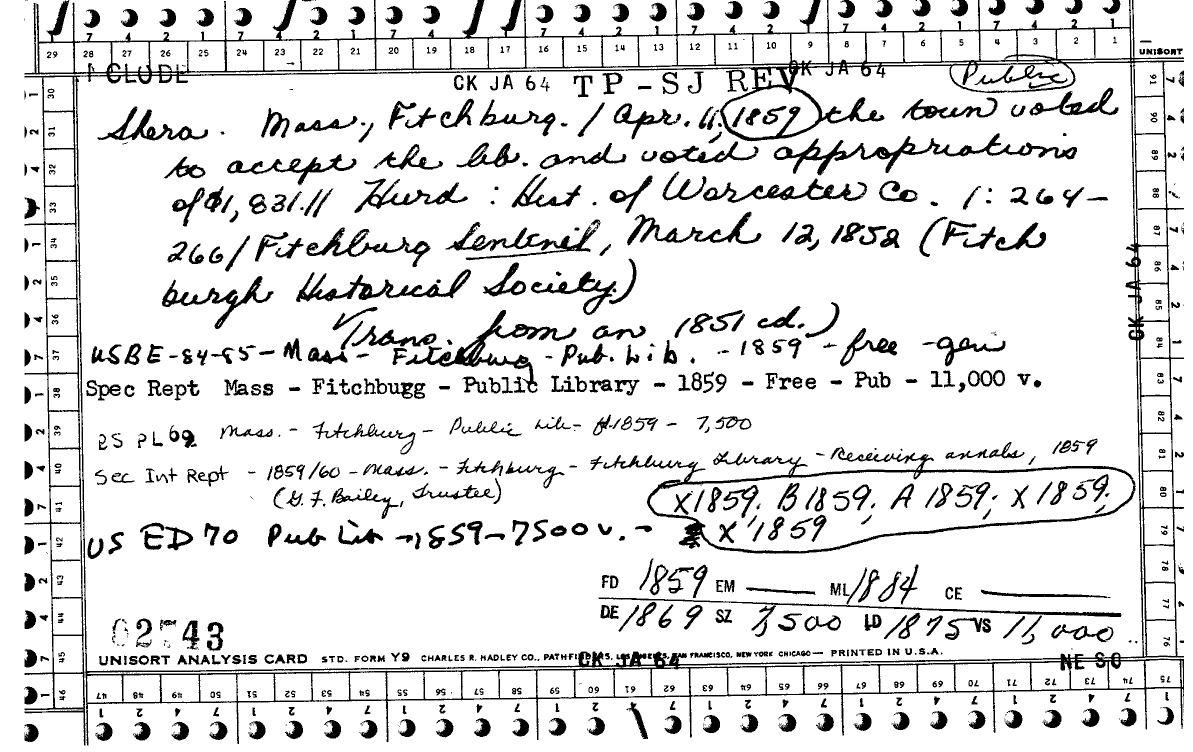 7 4 2 1 7 4 2 1 7 4 2 1 7 4 2 1 7 4 2 1 7 4 2 1 7 4 2 1
29 28 27 26 25 24 23 22 21 20 19 18 17 16 15 14 13 12 11 10 9 8 7 6 5 4 3 2 1 UNISORT
CLUDE CK JA 64 TP-SJ REV CK JA 64 Public
Shera. Mass., Fitchburg. / Apr. 11, 1859 the town voted
to accept the lib. and voted appropriations
of $1,831.11 Hurd: Hist. of Worcester Co. 1: 264-
266/Fitchburg Sentinel, March 12, 1852 (Fitch
burgh Historical Society)
Trans. from an 1851 ed.)
USBE-84-85-Mass-Fitchburg-Pub. Lib. -1859-free-gen
Spec Rept Mass - Fitchbugg - Public Library - 1859 - Free - Pub - 11,000 v.
PL 69 Mass. - Fitchburg - Public Lib - 1859 - 7,500
Sec Int Rept - 1859/60 - Mass. - Fitchburg - Fitchburg Library - Receiving annals, 1859
(G. F. Bailey, Trustee)
X1859; B1859; A1859; X1859;
X'1859
US ED 70 Pub Lib - 1859-7500 v. -
FD 1859 EM ML 1884 CE
DE 1869 SZ 7,500 LD 1875 VS 11,000
02743
UNISORT ANALYSIS CARD STD. FORM Y9 CHARLES R. HADLEY CO., PATHFINDERS, LOS ANGELES, SAN FRANCISCO, NEW YORK CHICAGO — PRINTED IN U.S.A.
CK JA 64 NE SO
CK JA 64
30 31 32 33 34 35 36 37 38 39 40 41 42 43 44 45 46
91 90 89 88 87 86 85 84 83 82 81 80 79 78 77 76 75
47 48 49 50 51 52 53 54 55 56 57 58 59 60 61 62 63 64 65 66 67 68 69 70 71 72 73 74